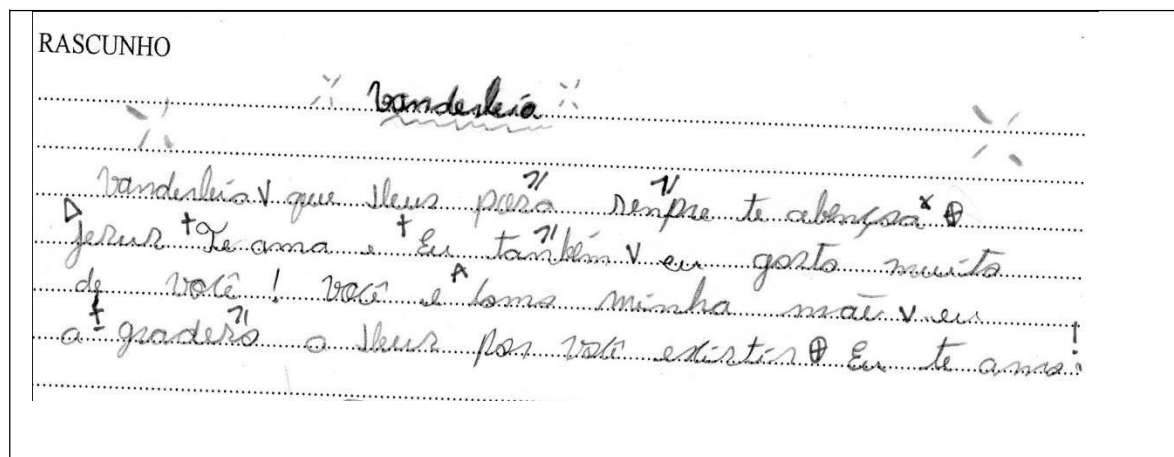 RASCUNHO
Vanderleia
Vanderleia que Deus para senpre te abençoa
Jesus Te ama e Eu tanbém eu gosto muito
de você ! você e como minha mãe eu
a gradeso a Deus por você existir Eu te amo!